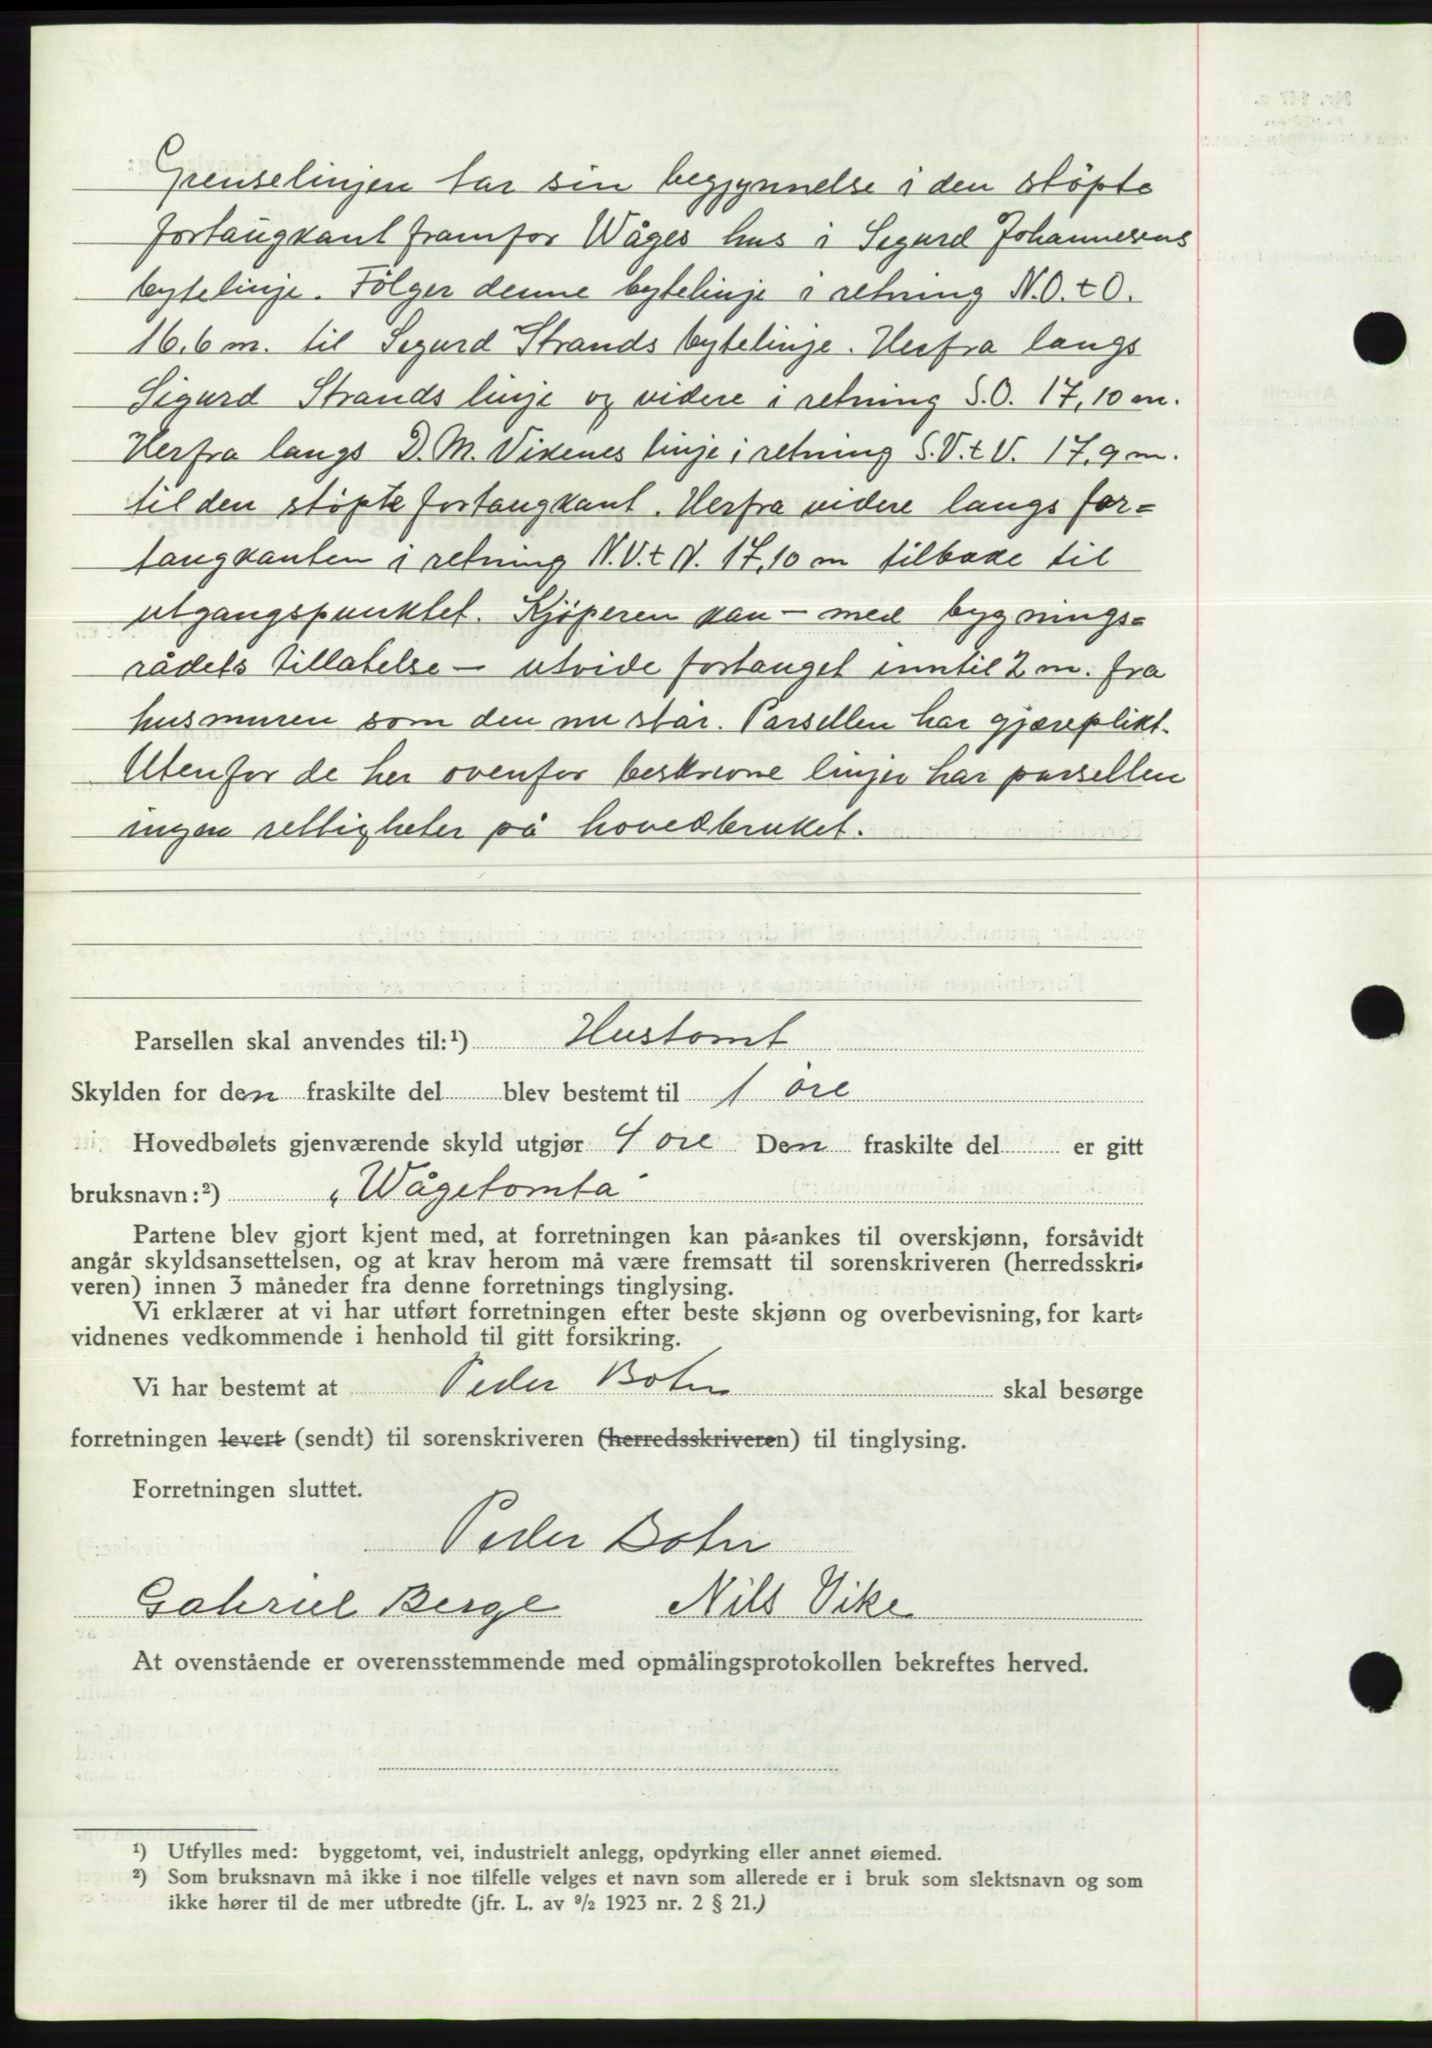 Grenselinjen tar sin begjynnelse i den støpte
fortaugkant framfor Wåges hus i Sigurd Johannesens
bytelinje. Følger denne bytelinje i retning N.O.t O.
16.6 m. til Sigurd Strands bytelinje. Herfra langs
Sigurd Strands linje og videre i retning S.O. 17,10 m.
Herfra langs D. M. Vikenes linje i retning S.V.t V. 17,9 m.
til den støpte fortaugkant. Herfra videre langs for=
taugkanten i retning N.V.t N. 17,10 m tilbake til
utgangspunktet. Kjøperen kan - med bygnings=
rådets tillatelse - utvide fortauget inntil 2 m. fra
husmuren som den nu står. Parsellen har gjæreplikt.
Utenfor de her ovenfor beskrevne linjer har parsellen
ingen rettigheter på hovedbruket.
Parsellen skal anvendes til:¹) Hustomt
Skylden for den fraskilte del blev bestemt til 1 øre
Hovedbølets gjenværende skyld utgjør 4 øre Den fraskilte del er gitt
bruksnavn:²) „Wågetomta"
Partene blev gjort kjent med, at forretningen kan på-ankes til overskjønn, forsåvidt
angår skyldsansettelsen, og at krav herom må være fremsatt til sorenskriveren (herredsskri-
veren) innen 3 måneder fra denne forretnings tinglysing.
Vi erklærer at vi har utført forretningen efter beste skjønn og overbevisning, for kart-
vidnenes vedkommende i henhold til gitt forsikring.
Vi har bestemt at Peder Bohn skal besørge
forretningen levert (sendt) til sorenskriveren (herredsskriveren) til tinglysing.
Forretningen sluttet.
Peder Bohn
Gabriel Berge Nils Vike
At ovenstående er overensstemmende med opmålingsprotokollen bekreftes herved.
¹) Utfylles med: byggetomt, vei, industrielt anlegg, opdyrking eller annet øiemed.
²) Som bruksnavn må ikke i noe tilfelle velges et navn som allerede er i bruk som slektsnavn og som
ikke hører til de mer utbredte (jfr. L. av ⁹/₂ 1923 nr. 2 § 21.)